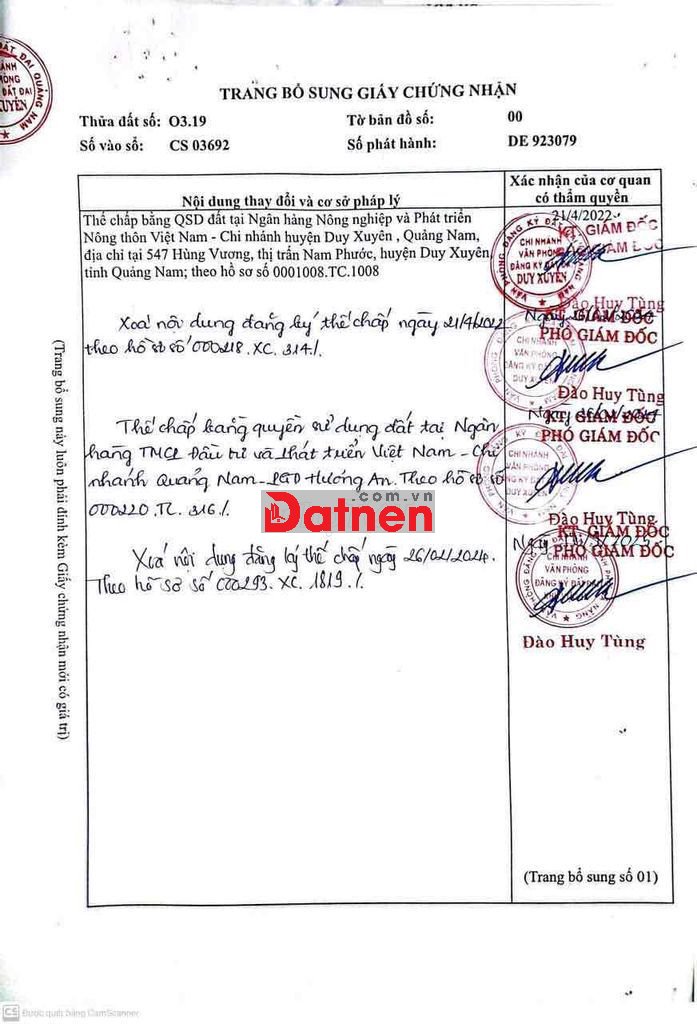 TRANG BỔ SUNG GIẤY CHỨNG NHẬN
Thửa đất số: O3.19 Tờ bản đồ số: 00
Số vào sổ: CS 03692 Số phát hành: DE 923079
Nội dung thay đổi và cơ sở pháp lý
Xác nhận của cơ quan
có thẩm quyền
Thế chấp bằng QSD đất tại Ngân hàng Nông nghiệp và Phát triển
Nông thôn Việt Nam - Chi nhánh huyện Duy Xuyên , Quảng Nam,
địa chỉ tại 547 Hùng Vương, thị trấn Nam Phước, huyện Duy Xuyên,
tỉnh Quảng Nam; theo hồ sơ số 0001008.TC.1008
21/4/2022
KT. GIÁM ĐỐC
GIÁM ĐỐC
CHI NHÁNH
VĂN PHÒNG
ĐĂNG KÝ ĐẤT ĐAI
DUY XUYÊN
Đào Huy Tùng
Xoá nội dung đăng ký thế chấp ngày 21/4/2022
theo hồ sơ số 000218.XC.314/.
Ngày
KT. GIÁM ĐỐC
PHÓ GIÁM ĐỐC
CHI NHÁNH
VĂN PHÒNG
ĐĂNG KÝ ĐẤT ĐAI
DUY XUYÊN
Đào Huy Tùng
Thế chấp bằng quyền sử dụng đất tại Ngân
hàng TMCP Đầu tư và Phát triển Việt Nam - Chi
nhánh Quảng Nam - PGD Hương An. Theo hồ sơ số
000220.TC.316/.
Ngày
KT. GIÁM ĐỐC
PHÓ GIÁM ĐỐC
CHI NHÁNH
VĂN PHÒNG
ĐĂNG KÝ ĐẤT ĐAI
DUY XUYÊN
Đào Huy Tùng
Xoá nội dung đăng ký thế chấp ngày 26/02/2024.
Theo hồ sơ số 000293.XC.1819/.
Ngày
KT. GIÁM ĐỐC
PHÓ GIÁM ĐỐC
CHI NHÁNH
VĂN PHÒNG
ĐĂNG KÝ ĐẤT ĐAI
Đào Huy Tùng
(Trang bổ sung số 01)
(Trang bổ sung này luôn phải đính kèm Giấy chứng nhận mới có giá trị)
.com.vn
Datnen
CS Được quét bằng CamScanner